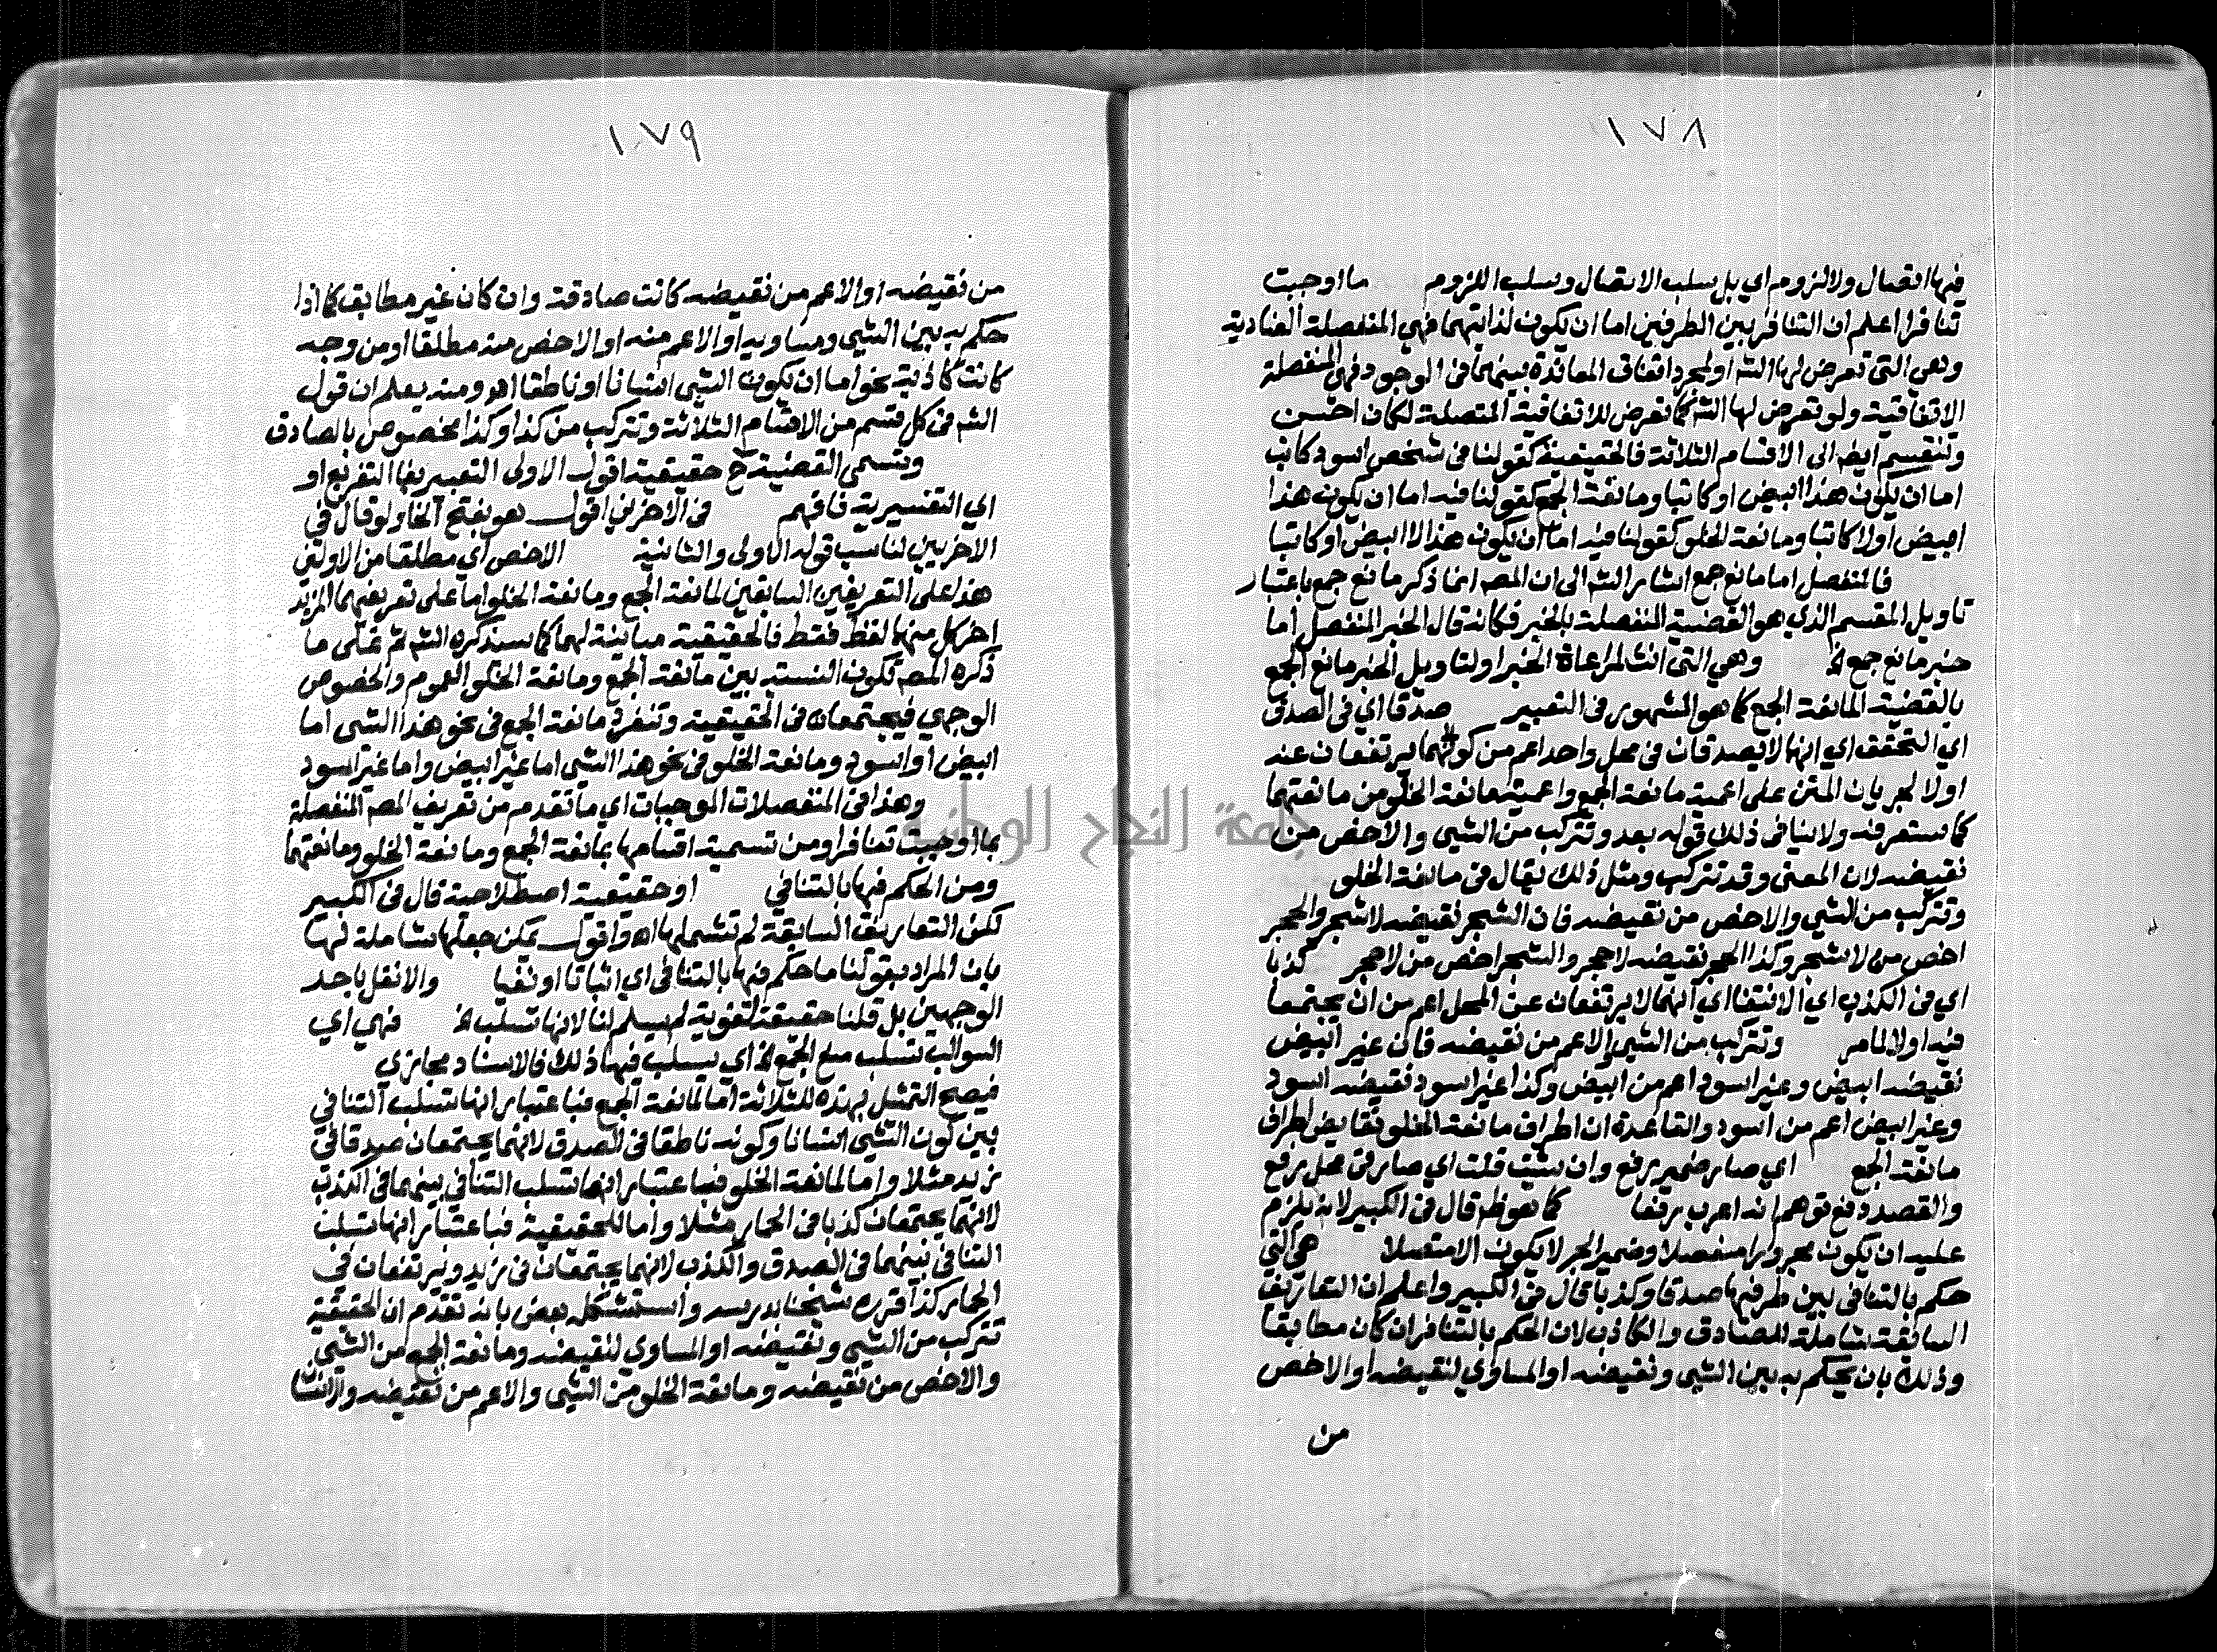 ١٧٨
فيها اتصال ولا لزوم اي بل بسلب الاتصال وسلب اللزوم ما اوجبت
تنافرا اعلم ان التنافر بين الطرفين اما ان يكون لذاتيهما فهي المنفصلة العنادية
وهي التي تعرض لها الشم او لمجرد اتفاق المعاندة بينهما في الوجود فهي المنفصلة
الاتفاقية ولو تعرض لها الشم كما تعرض للاتفاقية المتصلة لكان احسن
وتنقسم ايضا الى الاقسام الثلاثة فالحقيقية كقولنا في شخص اسود كاتب
اما ان يكون هذا ابيض او كاتبا ومانعة الجمع كقولنا فيه اما ان يكون هذا
ابيض اولا كاتبا ومانعة الخلو كقولنا فيه اما ان يكون هذا لا ابيض او كاتبا
فالمنفصل اما مانع جمع اشار الشم الى ان المصم انما ذكر مانع جمع باعتبار
تاويل المقسم الذي هو القضية المنفصلة بالخبر فكانه قال الخبر المنفصل اما
خبر مانع جمع الخ وهي التي انث لمراعاة الخبر او لتاويل الخبر مانع الجمع
بالقضية المانعة الجمع كما هو المشهور في التعبير صدقا اي في الصدق
اي التحقق اي انها لا يصدقان في محل واحد اعم من كونهما يرتفعان عند
اولا لجريان المتن على اعمية مانعة الجمع واعمية مانعة الخلو من مانعتهما
كما ستعرفه ولا ينافي ذلك قوله بعد وتتركب من الشيى والاخص من
نقيضه لان المعنى وقد تتركب ومثل ذلك يقال في مانعة الخلو
وتتركب من الشيى والاخص من نقيضه فان الشجر نقيضه لا شجر والحجر
اخص من لا شجر وكذا الحجر نقيضه لا حجر والشجر اخص من لا حجر كذبا
اي في الكذب اي الانتفا اي انهما لا يرتفعان عن المحل اعم من ان يجتمعا
فيه اولا لما مر وتتركب من الشيى والاعم من نقيضه فان غير ابيض
نقيضه ابيض وغير اسود اعم من ابيض وكذا غير اسود نقيضه اسود
وغير ابيض اعم من اسود والقاعدة ان اطراف مانعة الخلو نقايض اطراف
مانعة الجمع اي صار ضمير رفع وان شئت قلت اي صار في محل رفع
والقصد دفع توهم انه اعرب رفعا كما هو ظم قال في الكبير لانه يلزم
عليه ان يكون مجرورا منفصلا وضمير الجر لا يكون الا متصلا هي التي
حكم بالتنافي بين طرفيها صدقا وكذبا قال في الكبير واعلم ان التعاريف
السابقة شاملة للصادق والكاذب لان الحكم بالتنافر ان كان مطابقا
وذلك بان يحكم به بين الشيى ونقيضه او المساوي لنقيضه او الاخص
من
١٧٩
من نقيضه او الاعم من نقيضه كانت صادقة وان كان غير مطابق كما اذا
حكم به بين الشيى ومساويه او الاعم منه او الاخص منه مطلقا او من وجه
كانت كاذبة نحو اما ان يكون الشيى انسانا او ناطقا اهو ومنه يعلم ان قول
الشم في كل قسم من الاقسام الثلاثة وتتركب من كذا وكذا مخصوص بالصادق
وتسمى القضية ح حقيقية اقول الاولى التعبير بفا التفريع او
اي التفسيرية فافهم في الاخرين اقول هو بفتح الخا ولو قال في
الاخريين لناسب قوله الاولى والثانية الاخص اي مطلقا من الاولتي
هذا على التعريفين السابقين لمانعة الجمع ومانعة الخلو اما على تعريفهما المزيد
اخر كل منهما لفظ فقط فالحقيقية مباينة لهما كما سيذكره الشم ثم على ما
ذكره المصم تكون النسبة بين مانعة الجمع ومانعة الخلو العموم والخصوص
الوجهي فيجتمعان في الحقيقية وتنفرد مانعة الجمع في نحو هذا الشى اما
ابيض او اسود ومانعة الخلو في نحو هذا الشيى اما غير ابيض واما غير اسود
وهذا في المنفصلات الموجبات اي ما تقدم من تعريف المصم المنفصلة
بما اوجبت تنافرا ومن تسمية اقسامها بمانعة الجمع ومانعة الخلو ومانعتهما
ومن الحكم فيها بالتنافي او حقيقية اصطلاحية قال في الكبير
لكن التعاريف السابقة لم تشملها اه واقول يمكن جعلها شاملة لها
بان المراد بقولنا ما حكم فيها بالتنافي اي اثباتا او نفيا والا نقل باحد
الوجهين بل قلنا حقيقة لغوية لم يسلم لنا لانها تسلب الخ فهي اي
السوالب تسلب منع الجمع الخ اي يسلب فيها ذلك فالاسناد مجازي
فيصح التمثل بهذه للثلاثة اما لمانعة الجمع فباعتبار انها تسلب التنافي
بين كون الشيى انسانا وكونه ناطقا في الصدق لانهما يجتمعان صدقا في
زيد مثلا واما لمانعة الخلو فباعتبار انها تسلب التنافي بينهما في الكذب
لانهما يجتمعان كذبا في الحمار مثلا واما للحقيقية فباعتبار انها تسلب
التنافي بينهما في الصدق والكذب لانهما يجتمعان في زيد ويرتفعان في
الحمار كذا قرره شيخنا بدرسه واستشكل بعض بانه تقدم ان الحقيقية
تتركب من الشيى ونقيضه او المساوي لنقيضه ومانعة الجمع من الشيى
والاخص من نقيضه ومانعة الخلو من الشيى والاعم من نقيضه والانسان
جامعة النجاح الوطنية